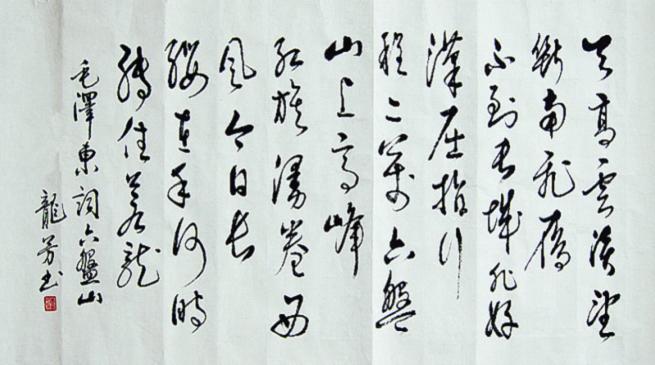 天高雲淡望
斷南飛雁
不到長城非好
漢屈指行
程二萬六盤
山上高峰
紅旗漫卷西
風今日長
纓在手何時
縛住蒼龍
毛澤東詞六盤山
龍芳书